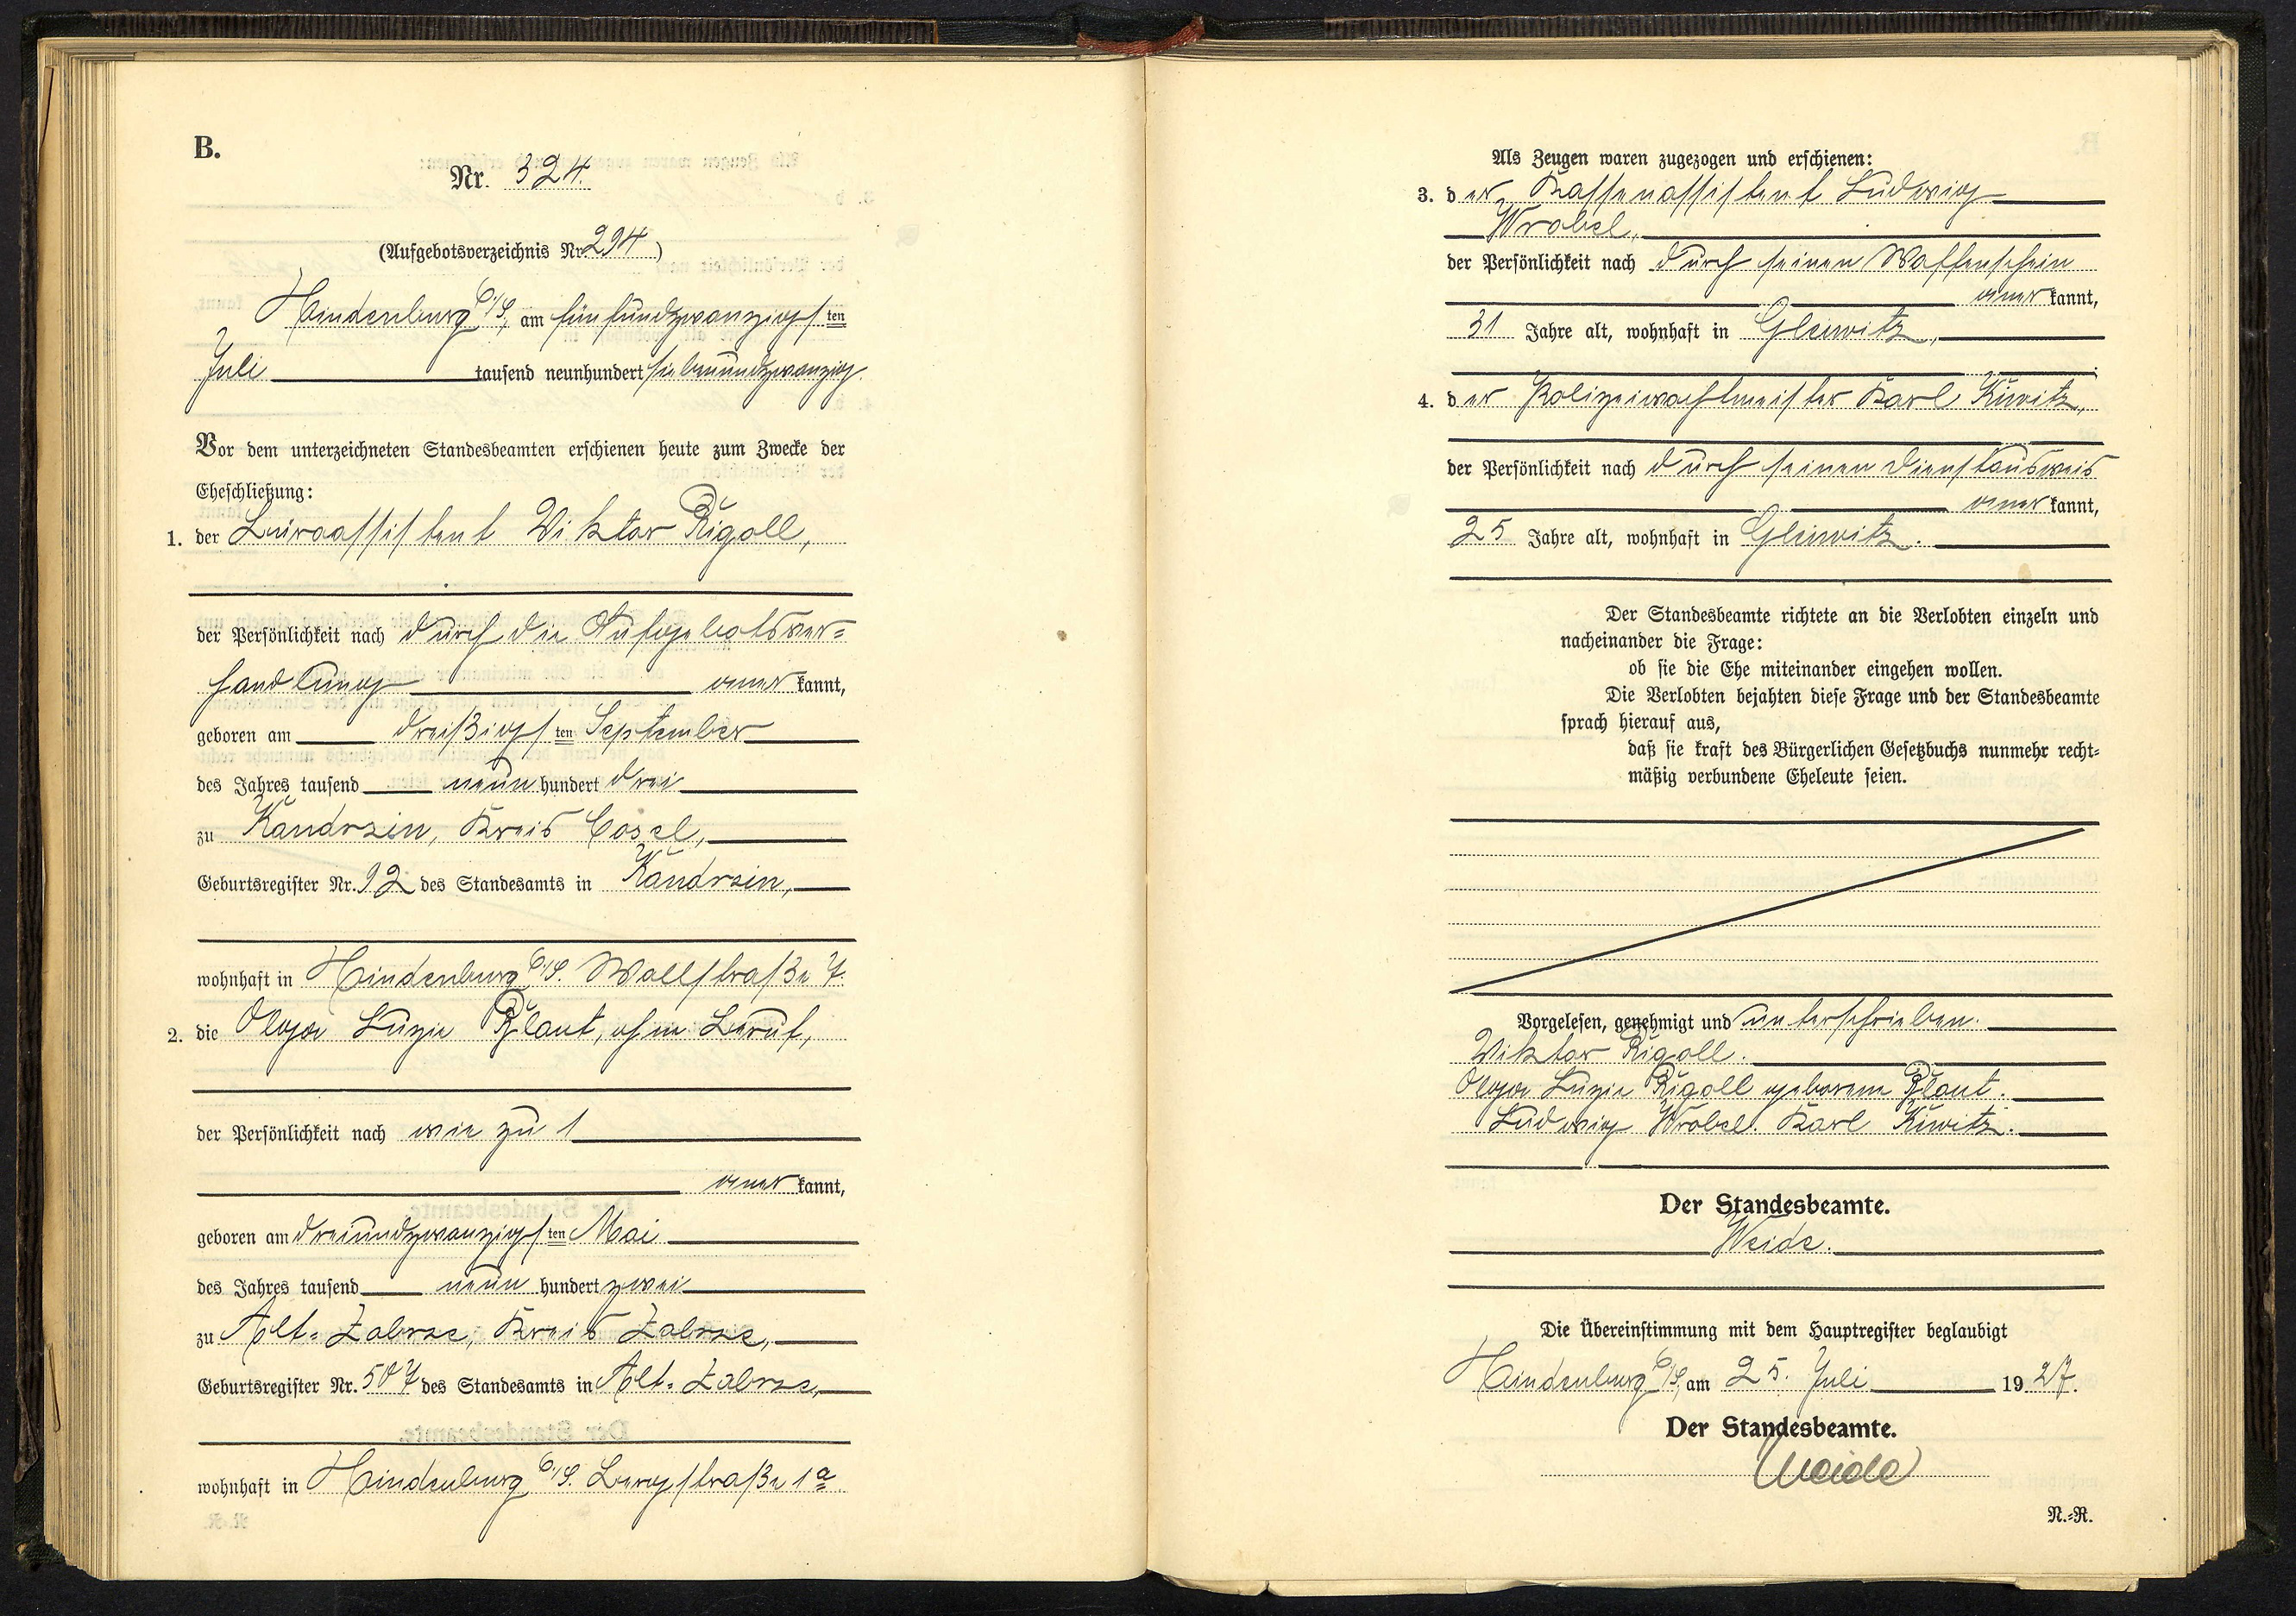 B.
Nr. 324.
(Aufgebotsverzeichnis Nr. 294)
Hindenburg O/S, am fünfundzwanzigsten
Juli tausend neunhundert siebenundzwanzig.
Vor dem unterzeichneten Standesbeamten erschienen heute zum Zwecke der
Eheschließung:
1. der Büroassistent Viktor Rigoll,
der Persönlichkeit nach durch die Aufgebotsver=
handlung anerkannt,
geboren am dreißigsten September
des Jahres tausend neunhundert drei
zu Kandrzin, Kreis Cosel,
Geburtsregister Nr. 92 des Standesamts in Kandrzin,
wohnhaft in Hindenburg O/S. Wallstraße 7.
2. die Olga Luzie Plaut, ohne Beruf,
der Persönlichkeit nach wie zu 1
anerkannt,
geboren am dreiundzwanzigsten Mai
des Jahres tausend neunhundert zwei
zu Alt=Zabrze, Kreis Zabrze,
Geburtsregister Nr. 507 des Standesamts in Alt=Zabrze,
wohnhaft in Hindenburg O/S. Bergstraße 1a
Als Zeugen waren zugezogen und erschienen:
3. der Kassenassistent Ludwig
Wrobel,
der Persönlichkeit nach durch seinen Waffenschein
anerkannt,
31 Jahre alt, wohnhaft in Gleiwitz,
4. der Polizeiwachtmeister Karl Kiwitz,
der Persönlichkeit nach durch seinen Dienstausweis
anerkannt,
25 Jahre alt, wohnhaft in Gleiwitz.
Der Standesbeamte richtete an die Verlobten einzeln und
nacheinander die Frage:
ob sie die Ehe miteinander eingehen wollen.
Die Verlobten bejahten diese Frage und der Standesbeamte
sprach hierauf aus,
daß sie kraft des Bürgerlichen Gesetzbuchs nunmehr recht=
mäßig verbundene Eheleute seien.
Vorgelesen, genehmigt und unterschrieben.
Viktor Rigoll.
Olga Luzie Rigoll geborene Plaut.
Ludwig Wrobel. Karl Kiwitz.
Der Standesbeamte.
Weide.
Die Übereinstimmung mit dem Hauptregister beglaubigt
Hindenburg O/S, am 25. Juli 1927.
Der Standesbeamte.
Weide
N.=R.